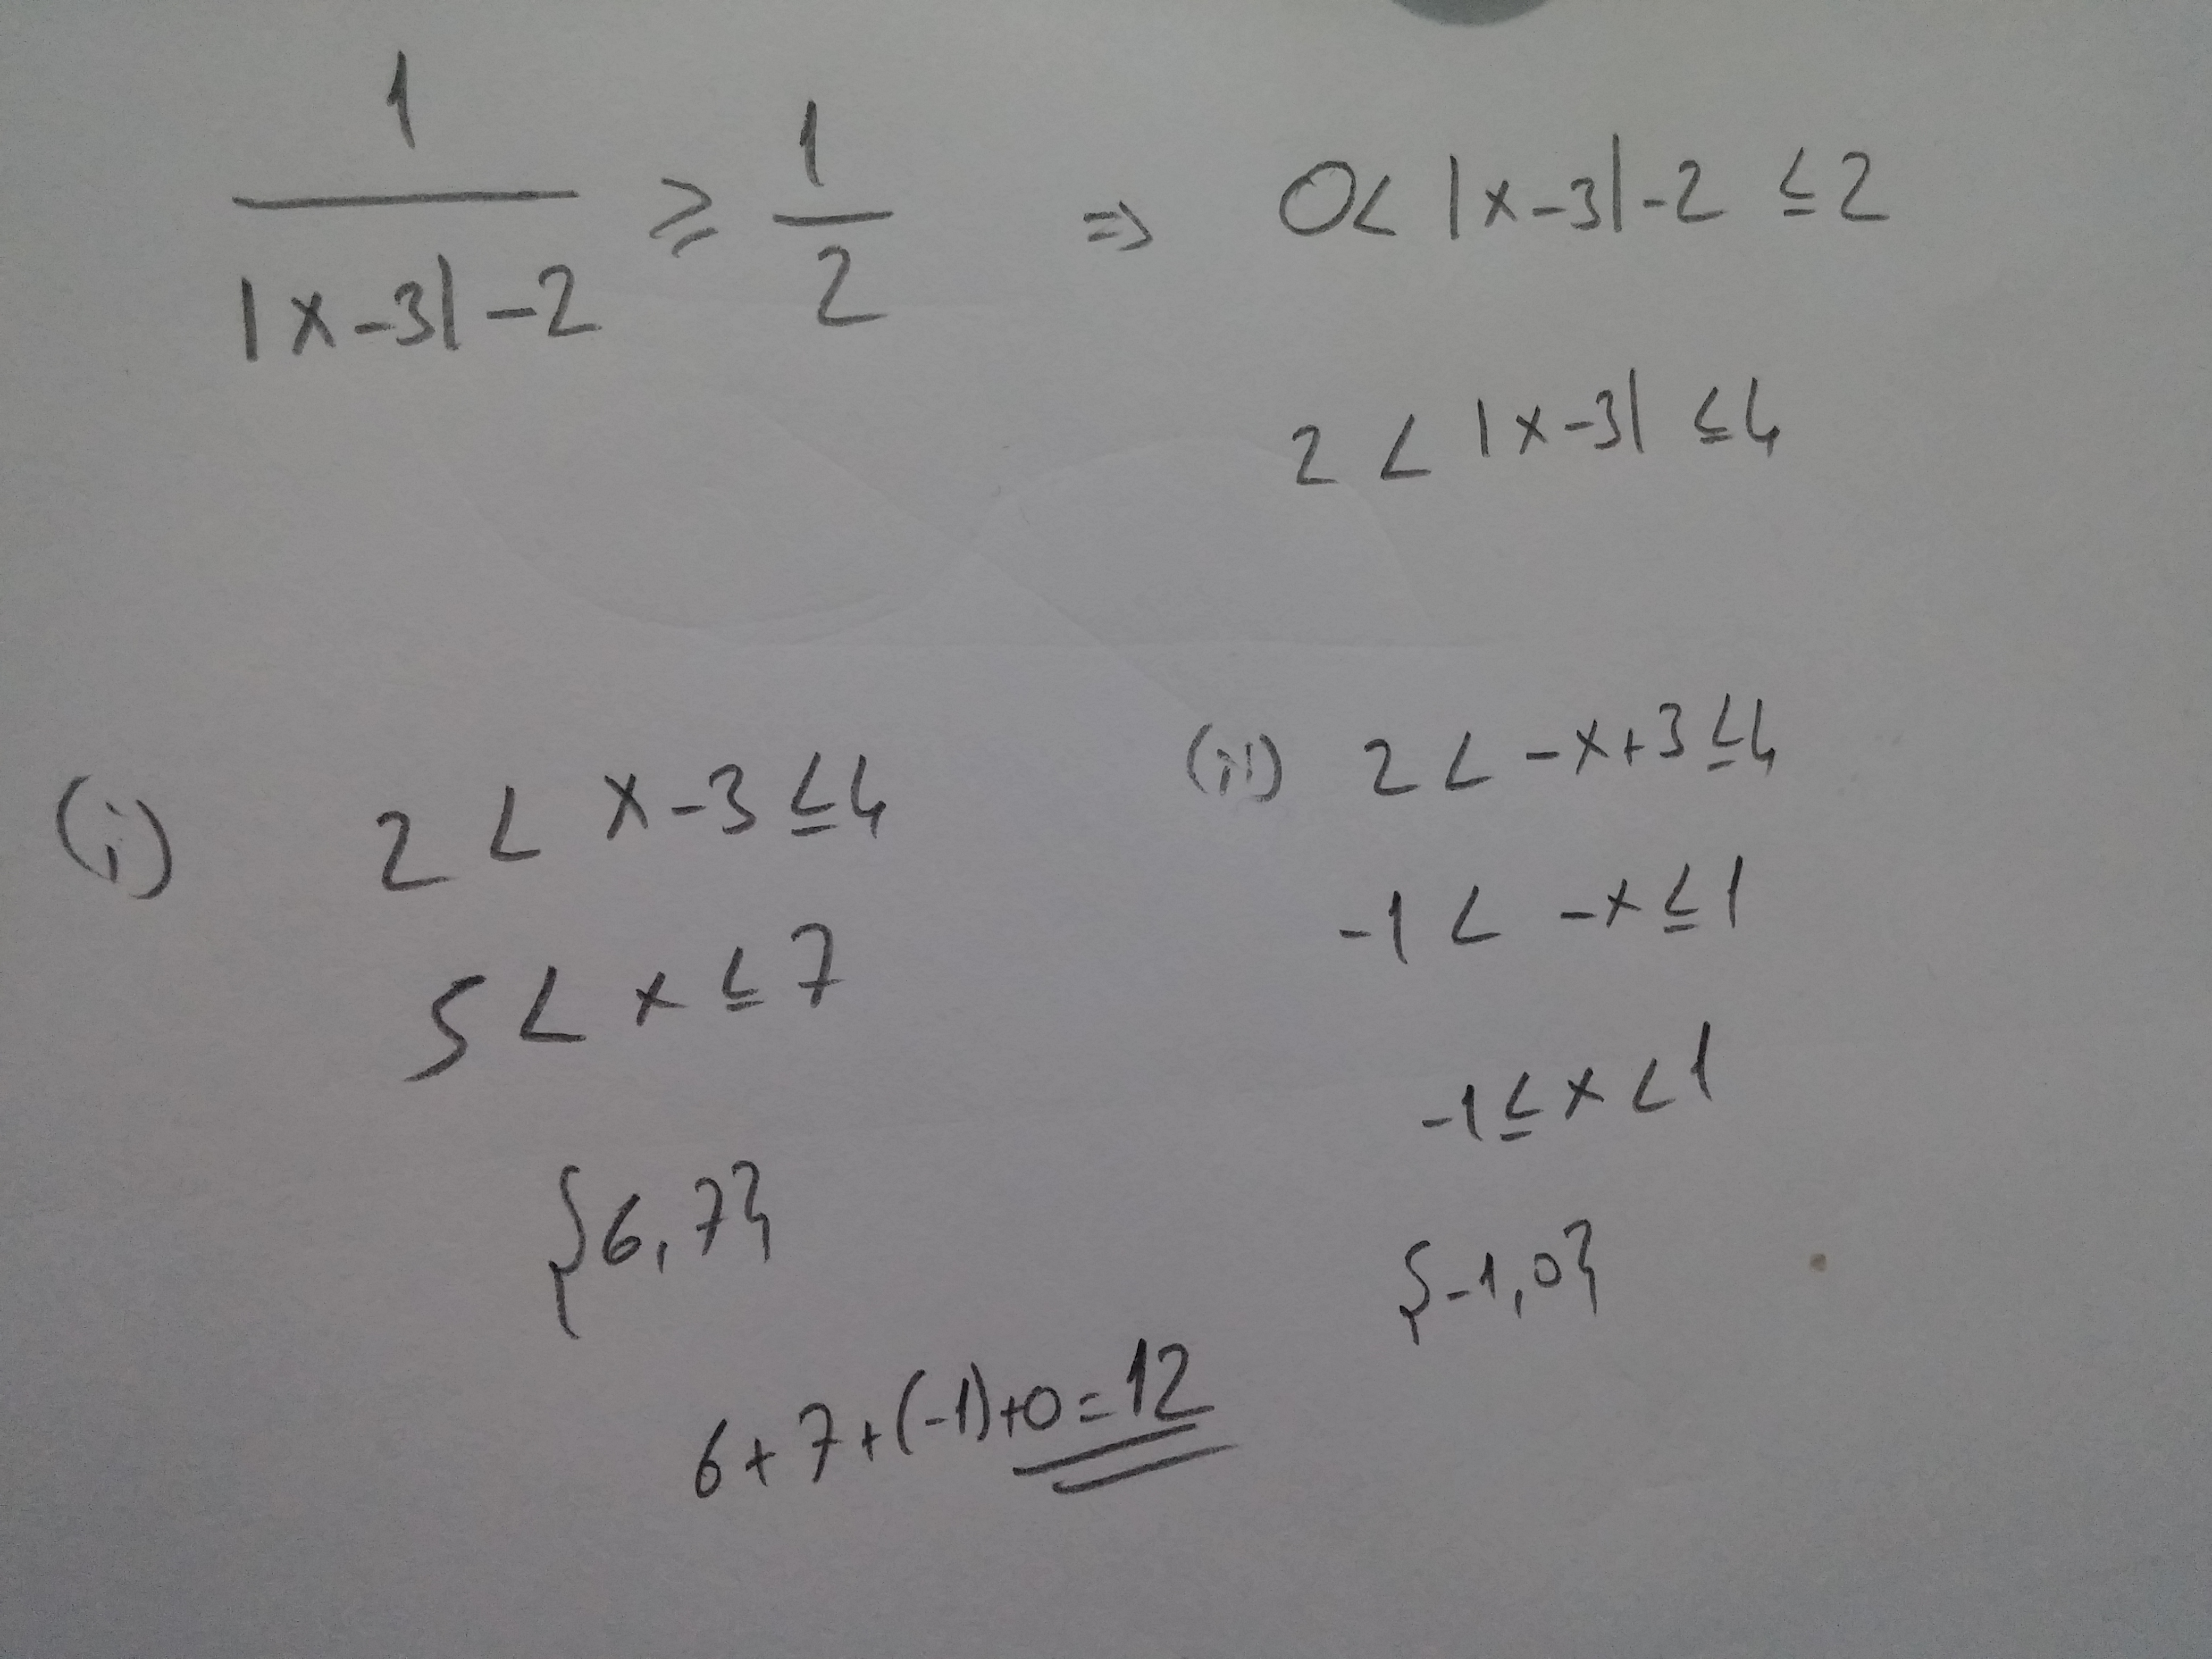 1/(|x-3|-2) ≥ 1/2 ⇒ 0< |x-3|-2 ≤2
2 < |x-3| ≤4
(i) 2 < x-3 ≤4
5 < x ≤ 7
{6,7}
(ii) 2 < -x+3 ≤4
-1 < -x ≤ 1
-1 ≤ x < 1
{-1,0}
6+7+(-1)+0=12